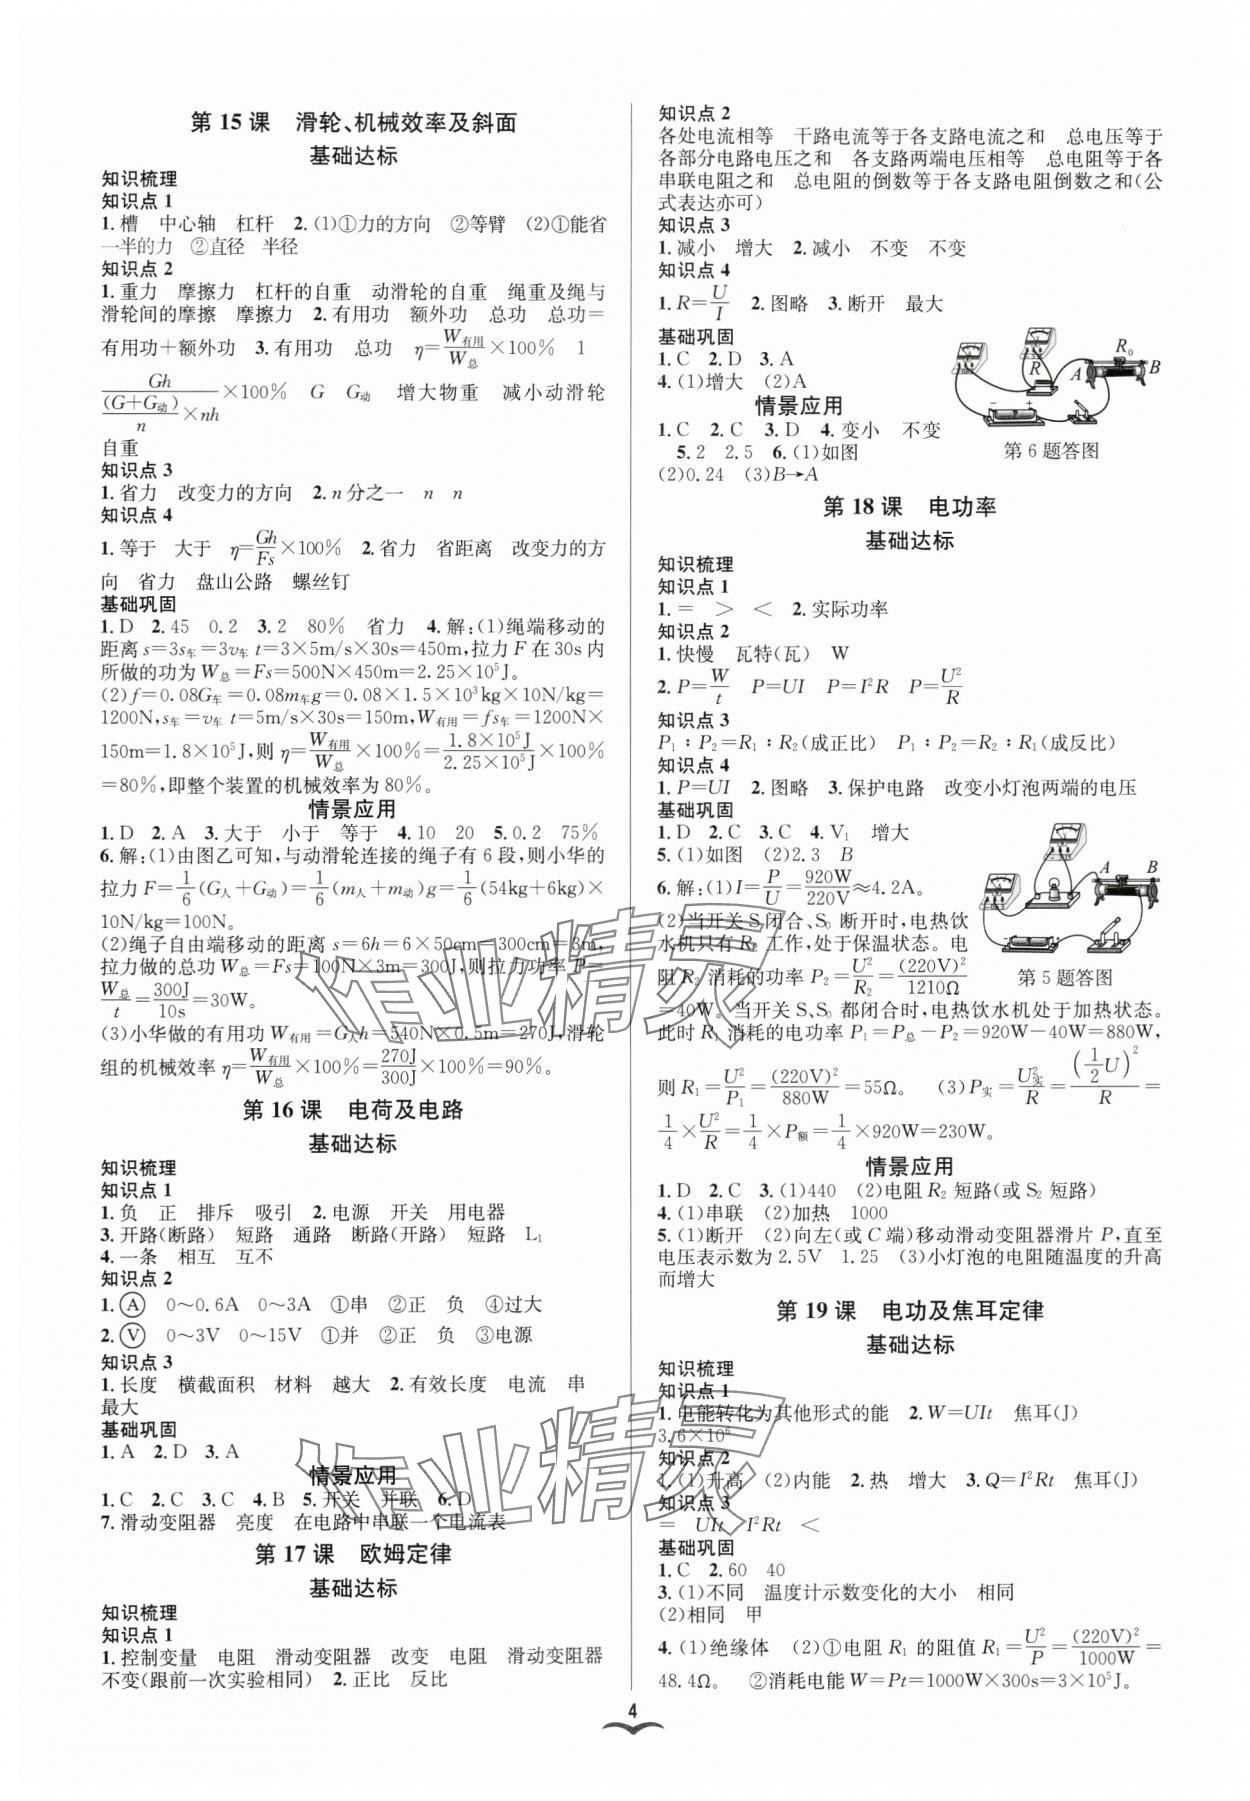 第 15 课　滑轮、机械效率及斜面
基础达标
知识梳理
知识点 1
1.槽　中心轴　杠杆　2.(1)①力的方向　②等臂　(2)①能省
一半的力　②直径　半径
知识点 2
1.重力　摩擦力　杠杆的自重　动滑轮的自重　绳重及绳与
滑轮间的摩擦　摩擦力　2.有用功　额外功　总功　总功=
有用功+额外功　3.有用功　总功　η=W有用/W总×100%　1
Gh/((G+G动)/n×nh)×100%　G　G动　增大物重　减小动滑轮
自重
知识点 3
1.省力　改变力的方向　2.n分之一　n　n
知识点 4
1.等于　大于　η=Gh/Fs×100%　2.省力　省距离　改变力的方
向　省力　盘山公路　螺丝钉
基础巩固
1.D　2.45　0.2　3.2　80%　省力　4.解:(1)绳端移动的
距离 s=3s车=3v车t=3×5m/s×30s=450m,拉力 F 在 30s 内
所做的功为 W总=Fs=500N×450m=2.25×10⁵J。
(2)f=0.08G车=0.08m车g=0.08×1.5×10³kg×10N/kg=
1200N,s车=v车t=5m/s×30s=150m,W有用=fs车=1200N×
150m=1.8×10⁵J,则 η=W有用/W总×100%=1.8×10⁵J/2.25×10⁵J×100%
=80%,即整个装置的机械效率为 80%。
情景应用
1.D　2.A　3.大于　小于　等于　4.10　20　5.0.2　75%
6.解:(1)由图乙可知,与动滑轮连接的绳子有 6 段,则小华的
拉力 F=1/6(G人+G动)=1/6(m人+m动)g=1/6(54kg+6kg)×
10N/kg=100N。
(2)绳子自由端移动的距离 s=6h=6×50cm=300cm=3m,
拉力做的总功 W总=Fs=100N×3m=300J,则拉力功率 P=
W总/t=300J/10s=30W。
(3)小华做的有用功 W有用=G人h=540N×0.5m=270J,滑轮
组的机械效率 η=W有用/W总×100%=270J/300J×100%=90%。
第 16 课　电荷及电路
基础达标
知识梳理
知识点 1
1.负　正　排斥　吸引　2.电源　开关　用电器
3.开路(断路)　短路　通路　断路(开路)　短路　L₁
4.一条　相互　互不
知识点 2
1.Ⓐ　0～0.6A　0～3A　①串　②正　负　④过大
2.Ⓥ　0～3V　0～15V　①并　②正　负　③电源
知识点 3
1.长度　横截面积　材料　越大　2.有效长度　电流　串
最大
基础巩固
1.A　2.D　3.A
情景应用
1.C　2.C　3.C　4.B　5.开关　并联　6.D
7.滑动变阻器　亮度　在电路中串联一个电流表
第 17 课　欧姆定律
基础达标
知识梳理
知识点 1
1.控制变量　电阻　滑动变阻器　改变　电阻　滑动变阻器
不变(跟前一次实验相同)　2.正比　反比
知识点 2
各处电流相等　干路电流等于各支路电流之和　总电压等于
各部分电路电压之和　各支路两端电压相等　总电阻等于各
串联电阻之和　总电阻的倒数等于各支路电阻倒数之和(公
式表达亦可)
知识点 3
1.减小　增大　2.减小　不变　不变
知识点 4
1.R=U/I　2.图略　3.断开　最大
基础巩固
1.C　2.D　3.A
4.(1)增大　(2)A
情景应用
1.C　2.C　3.D　4.变小　不变
5.2　2.5　6.(1)如图
(2)0.24　(3)B→A
R　A　R₀　B
第 6 题答图
第 18 课　电功率
基础达标
知识梳理
知识点 1
1.=　>　<　2.实际功率
知识点 2
1.快慢　瓦特(瓦)　W
2.P=W/t　P=UI　P=I²R　P=U²/R
知识点 3
P₁∶P₂=R₁∶R₂(成正比)　P₁∶P₂=R₂∶R₁(成反比)
知识点 4
1.P=UI　2.图略　3.保护电路　改变小灯泡两端的电压
基础巩固
1.D　2.C　3.C　4.V₁　增大
5.(1)如图　(2)2.3　B
6.解:(1)I=P/U=920W/220V≈4.2A。
(2)当开关 S 闭合、S₀ 断开时,电热饮
水机只有 R₂ 工作,处于保温状态。电
阻 R₂ 消耗的功率 P₂=U²/R₂=(220V)²/1210Ω
A　B
第 5 题答图
=40W。当开关 S、S₀ 都闭合时,电热饮水机处于加热状态。
此时 R₁ 消耗的电功率 P₁=P总-P₂=920W-40W=880W,
则 R₁=U²/P₁=(220V)²/880W=55Ω。　(3)P实=U实²/R=(1/2U)²/R=
1/4×U²/R=1/4×P额=1/4×920W=230W。
情景应用
1.D　2.C　3.(1)440　(2)电阻 R₂ 短路(或 S₂ 短路)
4.(1)串联　(2)加热　1000
5.(1)断开　(2)向左(或 C 端)移动滑动变阻器滑片 P,直至
电压表示数为 2.5V　1.25　(3)小灯泡的电阻随温度的升高
而增大
第 19 课　电功及焦耳定律
基础达标
知识梳理
知识点 1
1.电能转化为其他形式的能　2.W=UIt　焦耳(J)
3.6×10⁶
知识点 2
1.(1)升高　(2)内能　2.热　增大　3.Q=I²Rt　焦耳(J)
知识点 3
=　UIt　I²Rt　<
基础巩固
1.C　2.60　40
3.(1)不同　温度计示数变化的大小　相同
(2)相同　甲
4.(1)绝缘体　(2)①电阻 R₁ 的阻值 R₁=U²/P=(220V)²/1000W=
48.4Ω。　②消耗电能 W=Pt=1000W×300s=3×10⁵J。
4
作业精灵
作业精灵